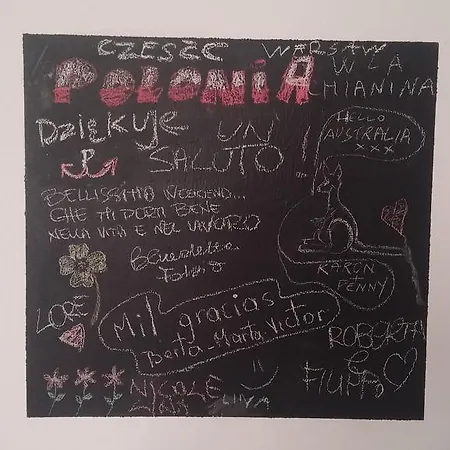 CZESZC WARSAW
POLONIA
W LA
CHIANINA
DZIĘKUJE
UN
SALUTO!!
HELLO
AUSTRALIA
XXX
P
BELLISSIMO WEEKEND...
CHE TI PORTI BENE
NELLA VITA E NEL LAVORO
Benedetta
KAREN
PENNY
LORE
Mil gracias
Berta Marta Victor
ROBERTA
&
FILIPPO
NICOLE
LIVA